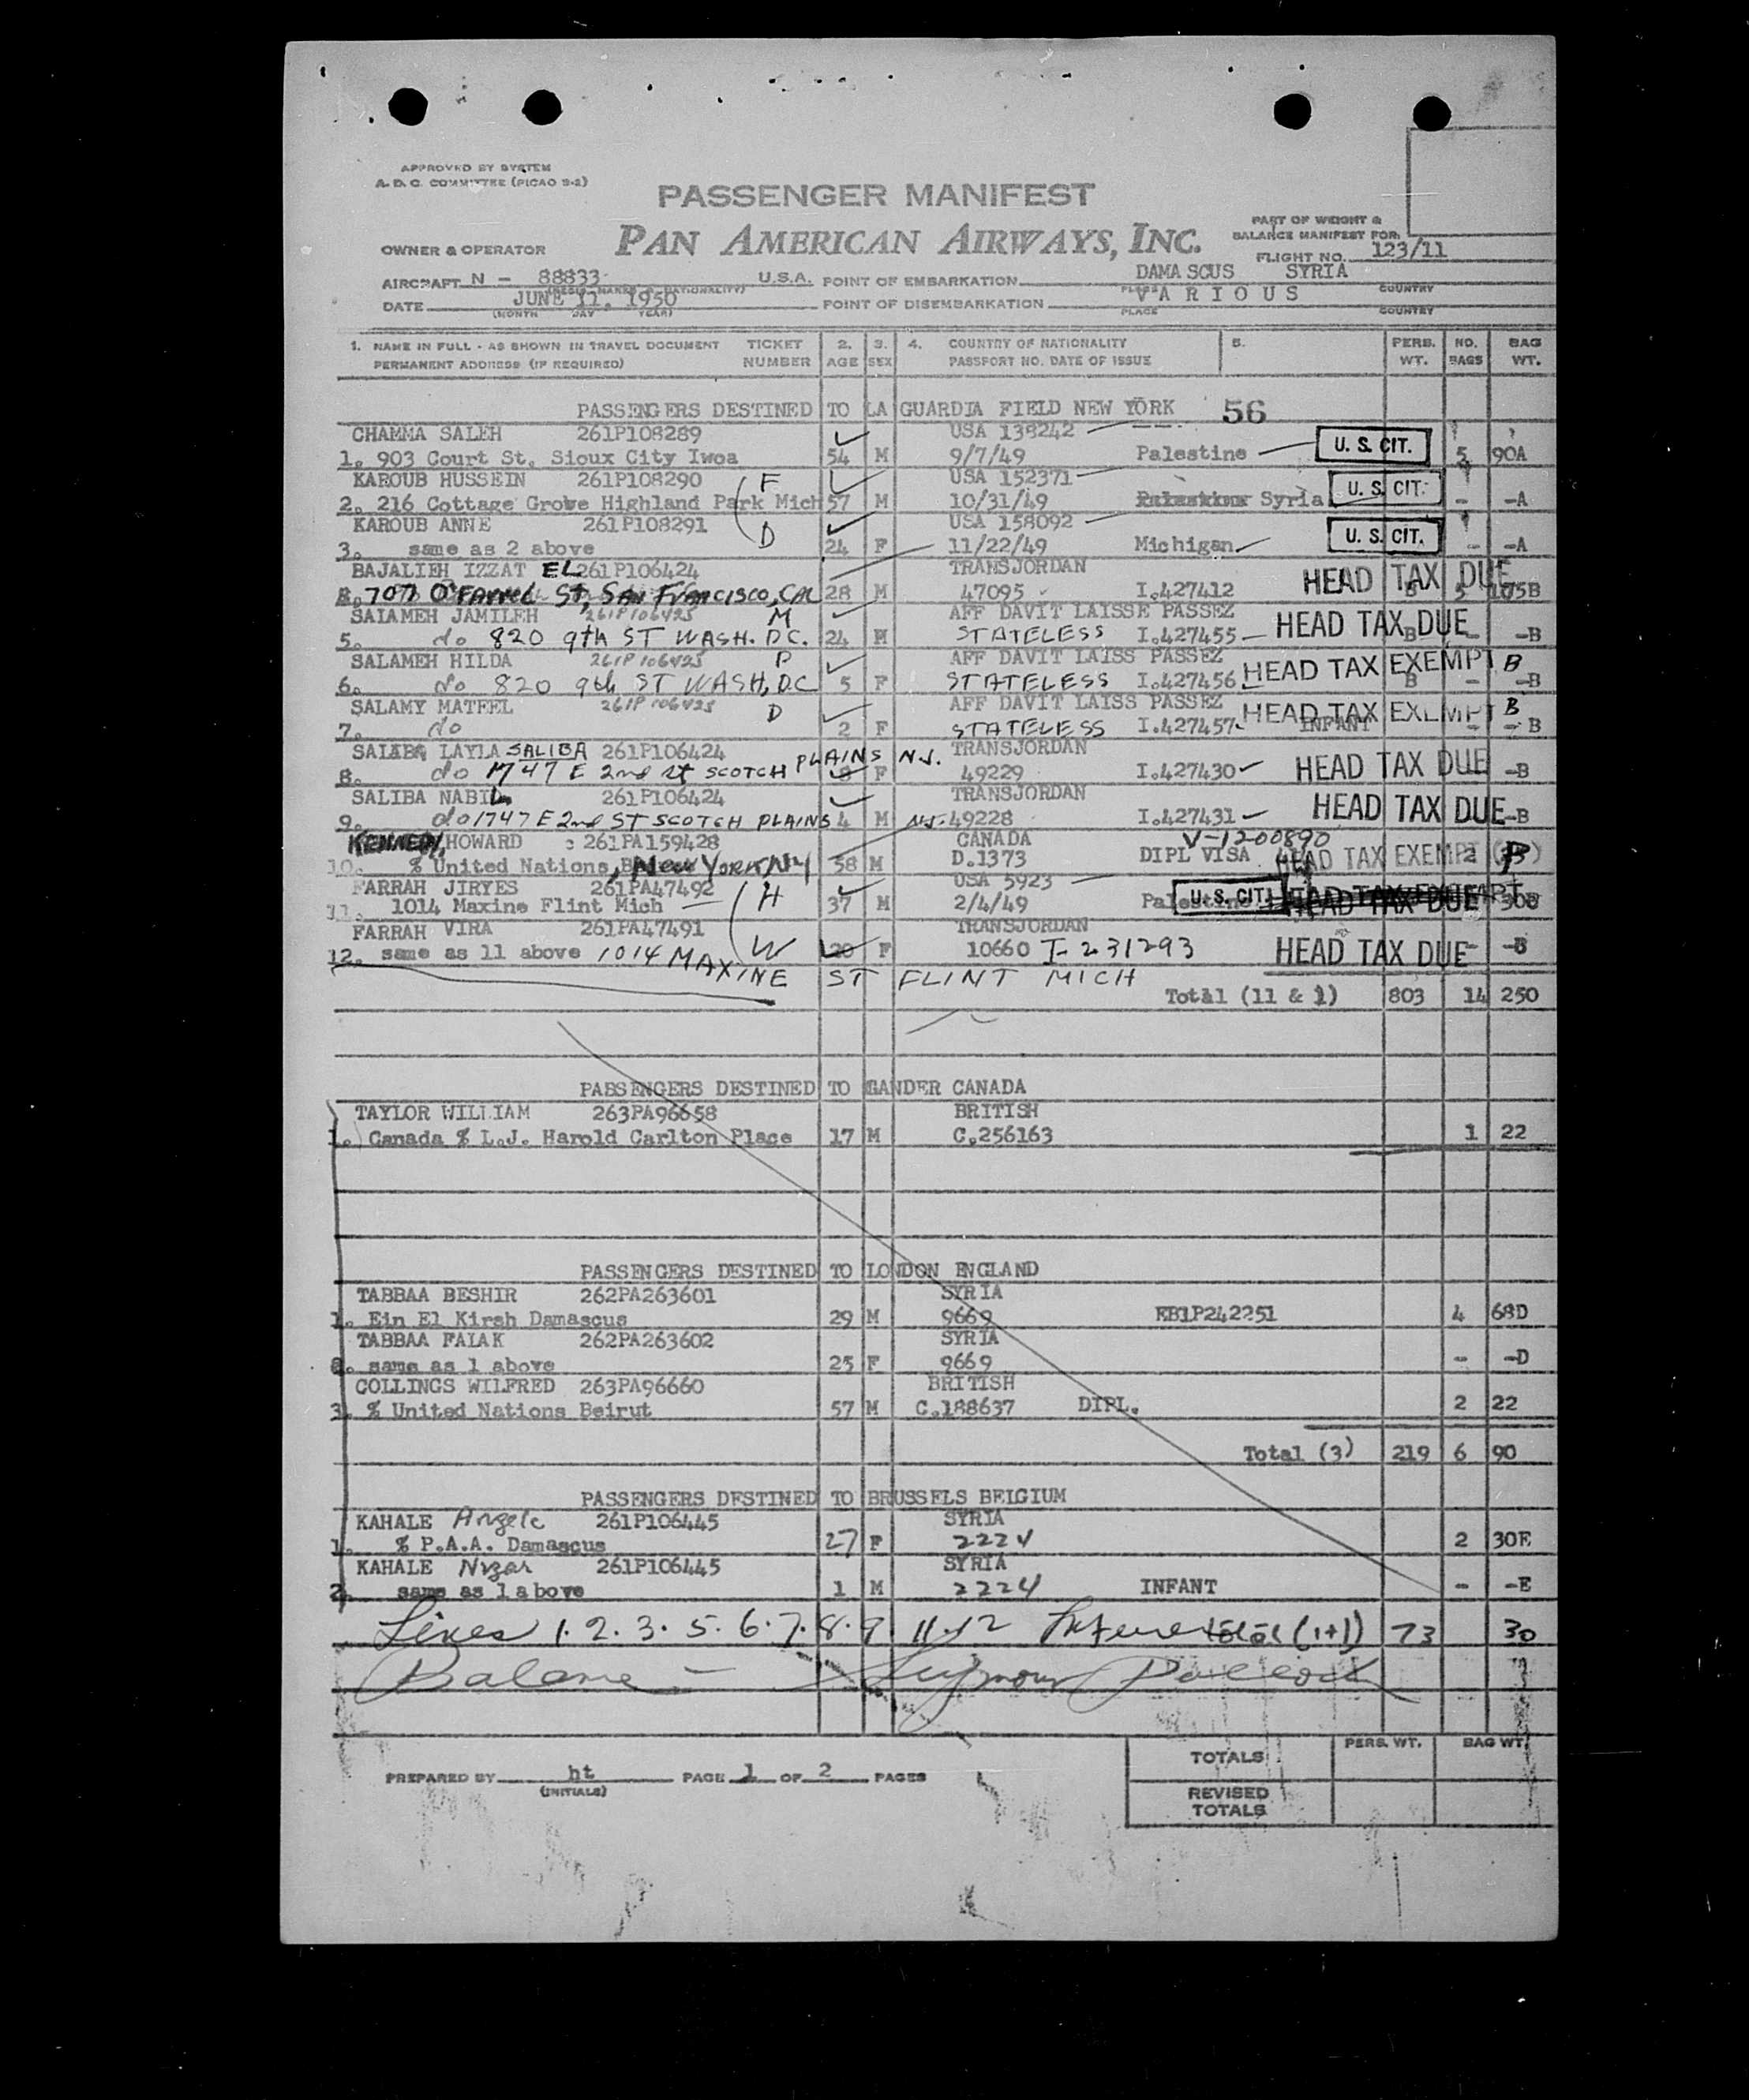 APPROVED BY SYSTEM
A. D. C. COMMITTEE (PICAO 9-2)
PASSENGER MANIFEST
OWNER & OPERATOR PAN AMERICAN AIRWAYS, INC.
PART OF WEIGHT &
BALANCE MANIFEST FOR:
FLIGHT NO. 123/11
AIRCRAFT N - 88833 U.S.A. POINT OF EMBARKATION DAMASCUS SYRIA
(REGIS. MARKS & NATIONALITY) PLACE COUNTRY
DATE JUNE 11, 1950 POINT OF DISEMBARKATION VARIOUS
(MONTH DAY YEAR) PLACE COUNTRY
1. NAME IN FULL - AS SHOWN IN TRAVEL DOCUMENT TICKET 2. 3. 4. COUNTRY OF NATIONALITY 5. PERS. NO. BAG
PERMANENT ADDRESS (IF REQUIRED) NUMBER AGE SEX PASSPORT NO. DATE OF ISSUE WT. BAGS WT.
PASSENGERS DESTINED TO LA GUARDIA FIELD NEW YORK 56
CHAMMA SALEH 261P108289 USA 138242
1. 903 Court St. Sioux City Iwoa 54 M 9/7/49 Palestine U. S. CIT. 5 90A
KAROUB HUSSEIN 261P108290 F USA 152371
2. 216 Cottage Grove Highland Park Mich 57 M 10/31/49 Syria U. S. CIT. - -A
KAROUB ANNE 261P108291 D USA 158092
3. same as 2 above 24 F 11/22/49 Michigan U. S. CIT. - -A
BAJALIEH IZZAT EL 261P106424 TRANSJORDAN
O'FARREL ST, SAN FRANCISCO, CAL 28 M 47095 I.427412 HEAD TAX DUE B 5 105B
SALAMEH JAMILEH 261P106425 M AFF DAVIT LAISSE PASSEZ
5. do 820 9th ST WASH. D.C. 24 STATELESS I.427455 HEAD TAX DUE B - -B
SALAMEH HILDA 261P106425 D AFF DAVIT LAISS PASSEZ
6. do 820 9th ST WASH, DC 5 F STATELESS I.427456 HEAD TAX EXEMPT B - -B
SALAMY MATEEL 261P106425 D AFF DAVIT LAISS PASSEZ
7. do 2 F STATELESS I.427457 HEAD TAX EXEMPT B INFANT - - B
SALIBA LAYLA SALIBA 261P106424 TRANSJORDAN
8. do 1747 E 2nd St SCOTCH PLAINS N.J. F 49229 I.427430 HEAD TAX DUE -B
SALIBA NABIL 261P106424 TRANSJORDAN
9. do 1747 E 2nd ST SCOTCH PLAINS N.J. 4 M 49228 I.427431 HEAD TAX DUE -B
KENNEDY, HOWARD : 261PA159428 CANADA V-1200890
10. % United Nations, New YORK NY 58 M D.1373 DIPL VISA HEAD TAX EXEMPT 2
FARRAH JIRYES 261PA47492 H USA 5923
11. 1014 Maxine Flint Mich 37 M 2/4/49 Palestine U. S. CIT. HEAD TAX DUE 30B
FARRAH VIRA 261PA47491 TRANSJORDAN
12. same as 11 above 1014 MAXINE ST FLINT MICH W 20 F 10660 I-231293 HEAD TAX DUE - -B
Total (11 & 1) 803 14 250
PASSENGERS DESTINED TO GANDER CANADA
TAYLOR WILLIAM 263PA96658 BRITISH
1. Canada % L.J. Harold Carlton Place 17 M C.256163 1 22
PASSENGERS DESTINED TO LONDON ENGLAND
TABBAA BESHIR 262PA263601 SYRIA
1. Ein El Kirsh Damascus 29 M 9669 EB1P242251 4 68D
TABBAA FALAK 262PA263602 SYRIA
2. same as 1 above 25 F 9669 - -D
COLLINGS WILFRED 263PA96660 BRITISH
3. % United Nations Beirut 57 M C.188637 DIPL. 2 22
Total (3) 219 6 90
PASSENGERS DESTINED TO BRUSSELS BELGIUM
KAHALE Angele 261P106445 SYRIA
1. % P.A.A. Damascus 27 F 2224 2 30E
KAHALE Nizar 261P106445 SYRIA
2. same as 1 above 1 M 2224 INFANT - -E
Lines 1. 2. 3. 5. 6. 7. 8. 9 11. 12 total (1+1) 73 30
Seymour
PREPARED BY ht PAGE 1 OF 2 PAGES
(INITIALS)
PERS. WT. BAG WT.
TOTALS
REVISED
TOTALS